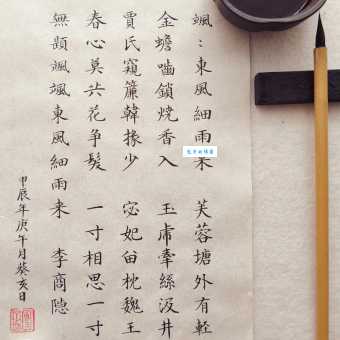 颯：東風細雨来　芙蓉塘外有軽
金蟾嚙鎖焼香入　玉虎牽絲汲井
賈氏窺簾韓掾少　宓妃留枕魏王
春心莫共花爭發　一寸相思一寸
無題颯颯東風細雨来　李商隐
甲辰年庚午月葵亥日